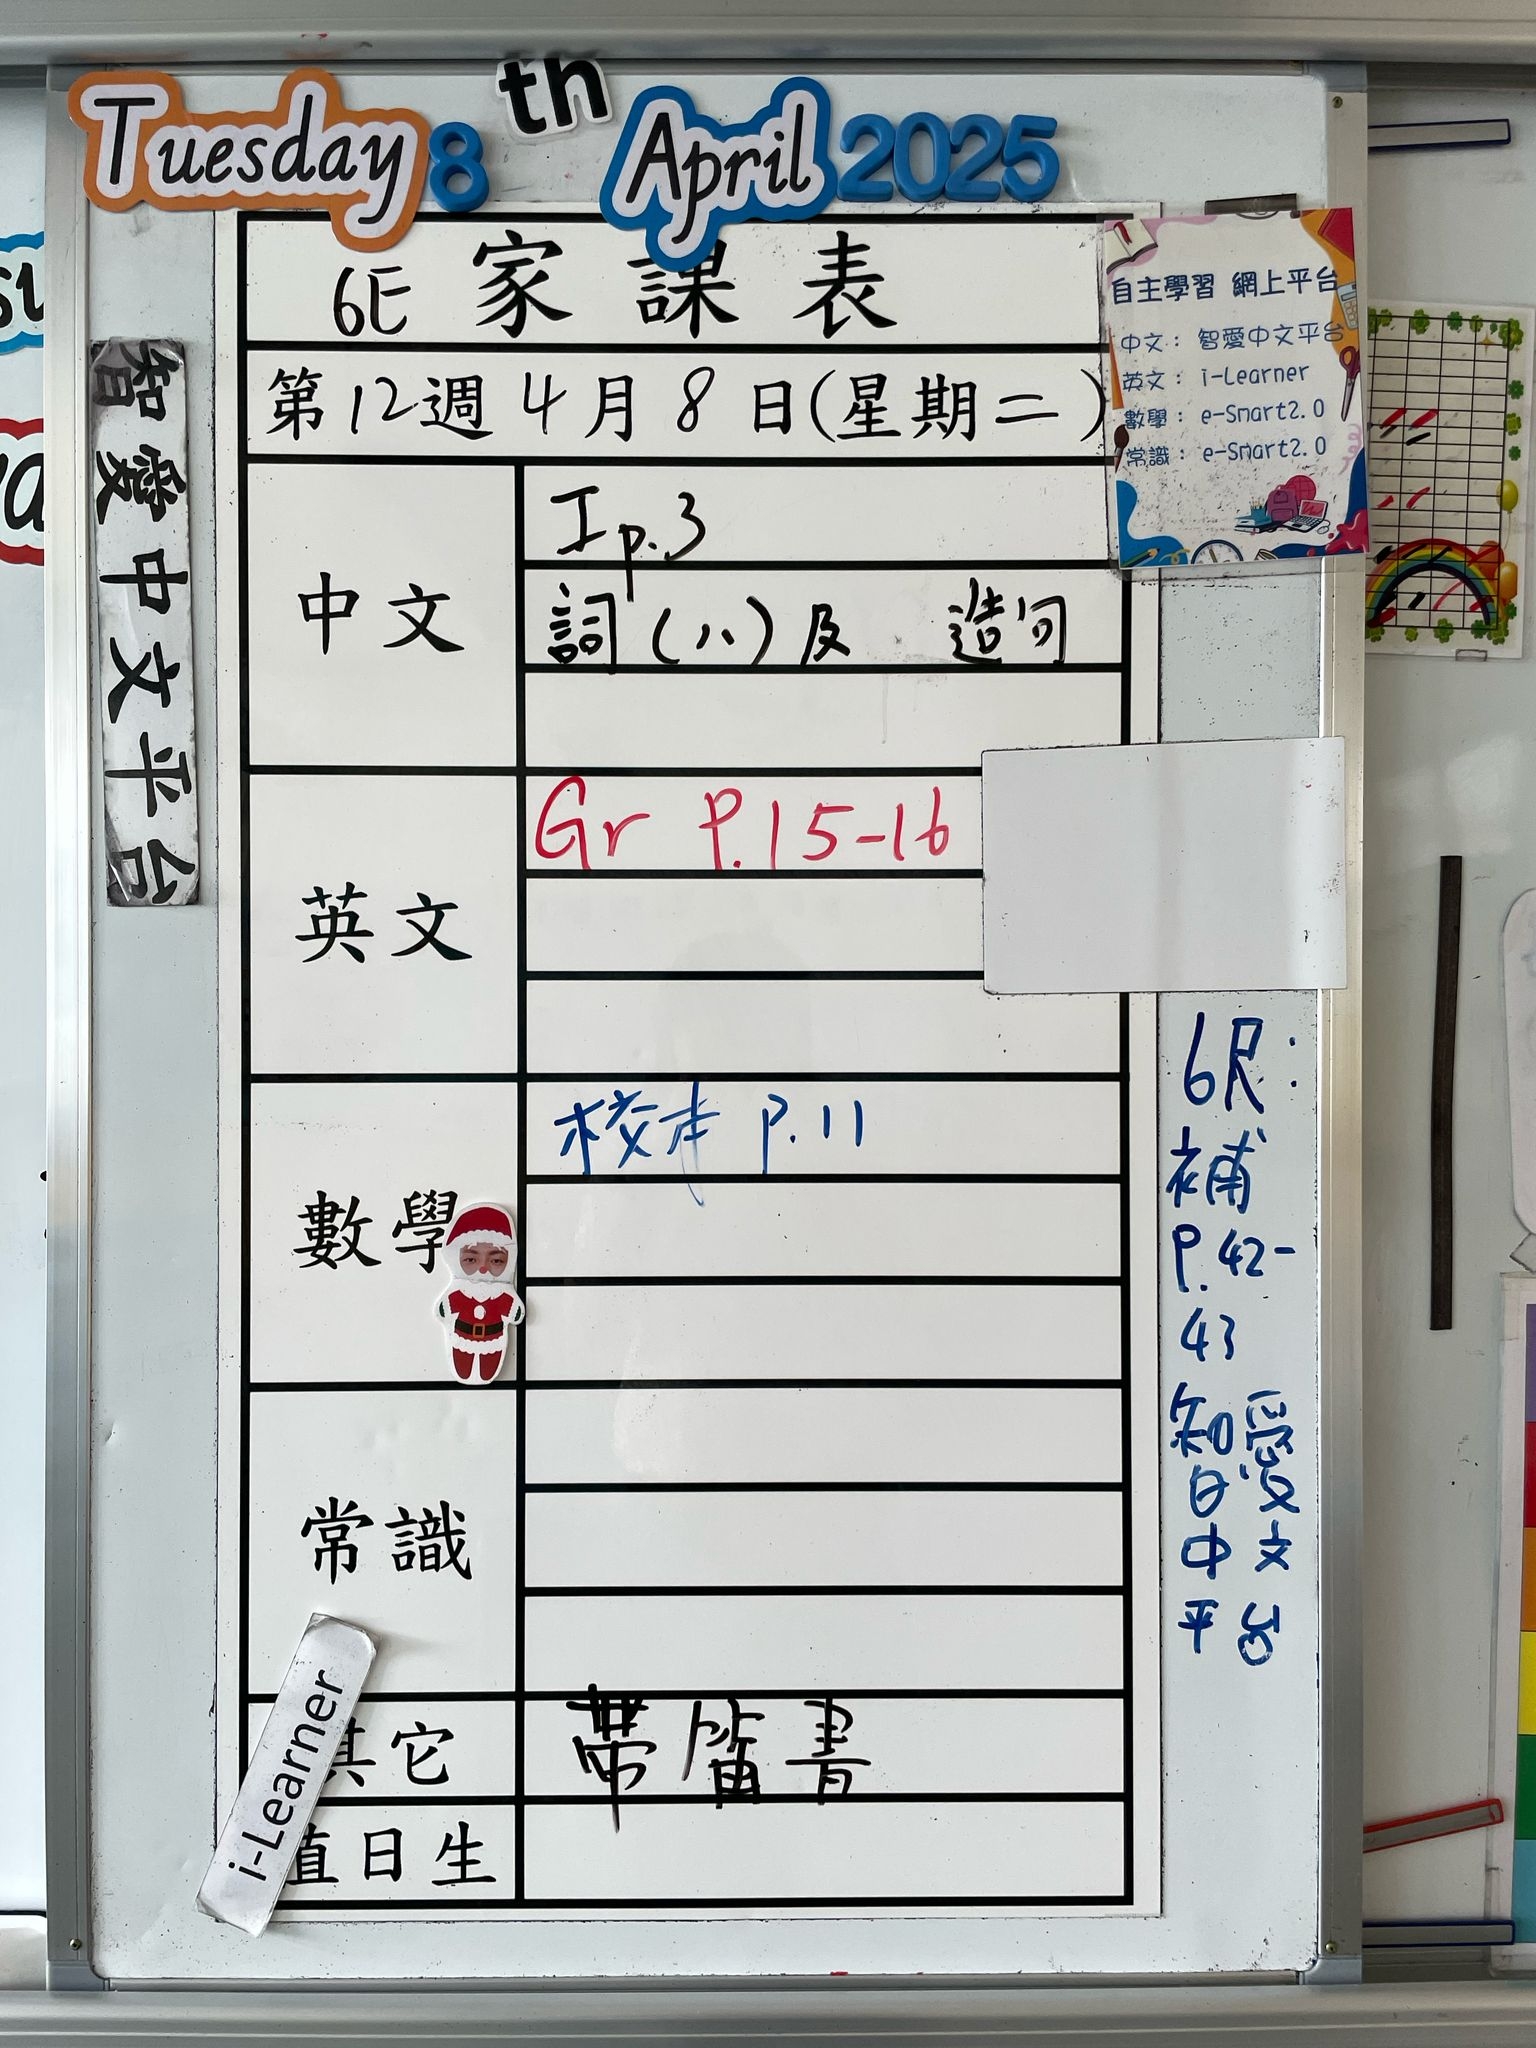 Tuesday 8th April 2025
6E 家課表
第12週4月8日(星期二)
自主學習 網上平台
中文： 智愛中文平台
英文： i-Learner
數學： e-Smart2.0
常識： e-Smart2.0
智愛中文平台
中文
工p.3
詞(八)及 造句
英文
Gr P.15-16
數學
校本 p.11
常識
其它
帶笛書
值日生
i-Learner
6R:
補
P.42-
43
智愛
中文
平台